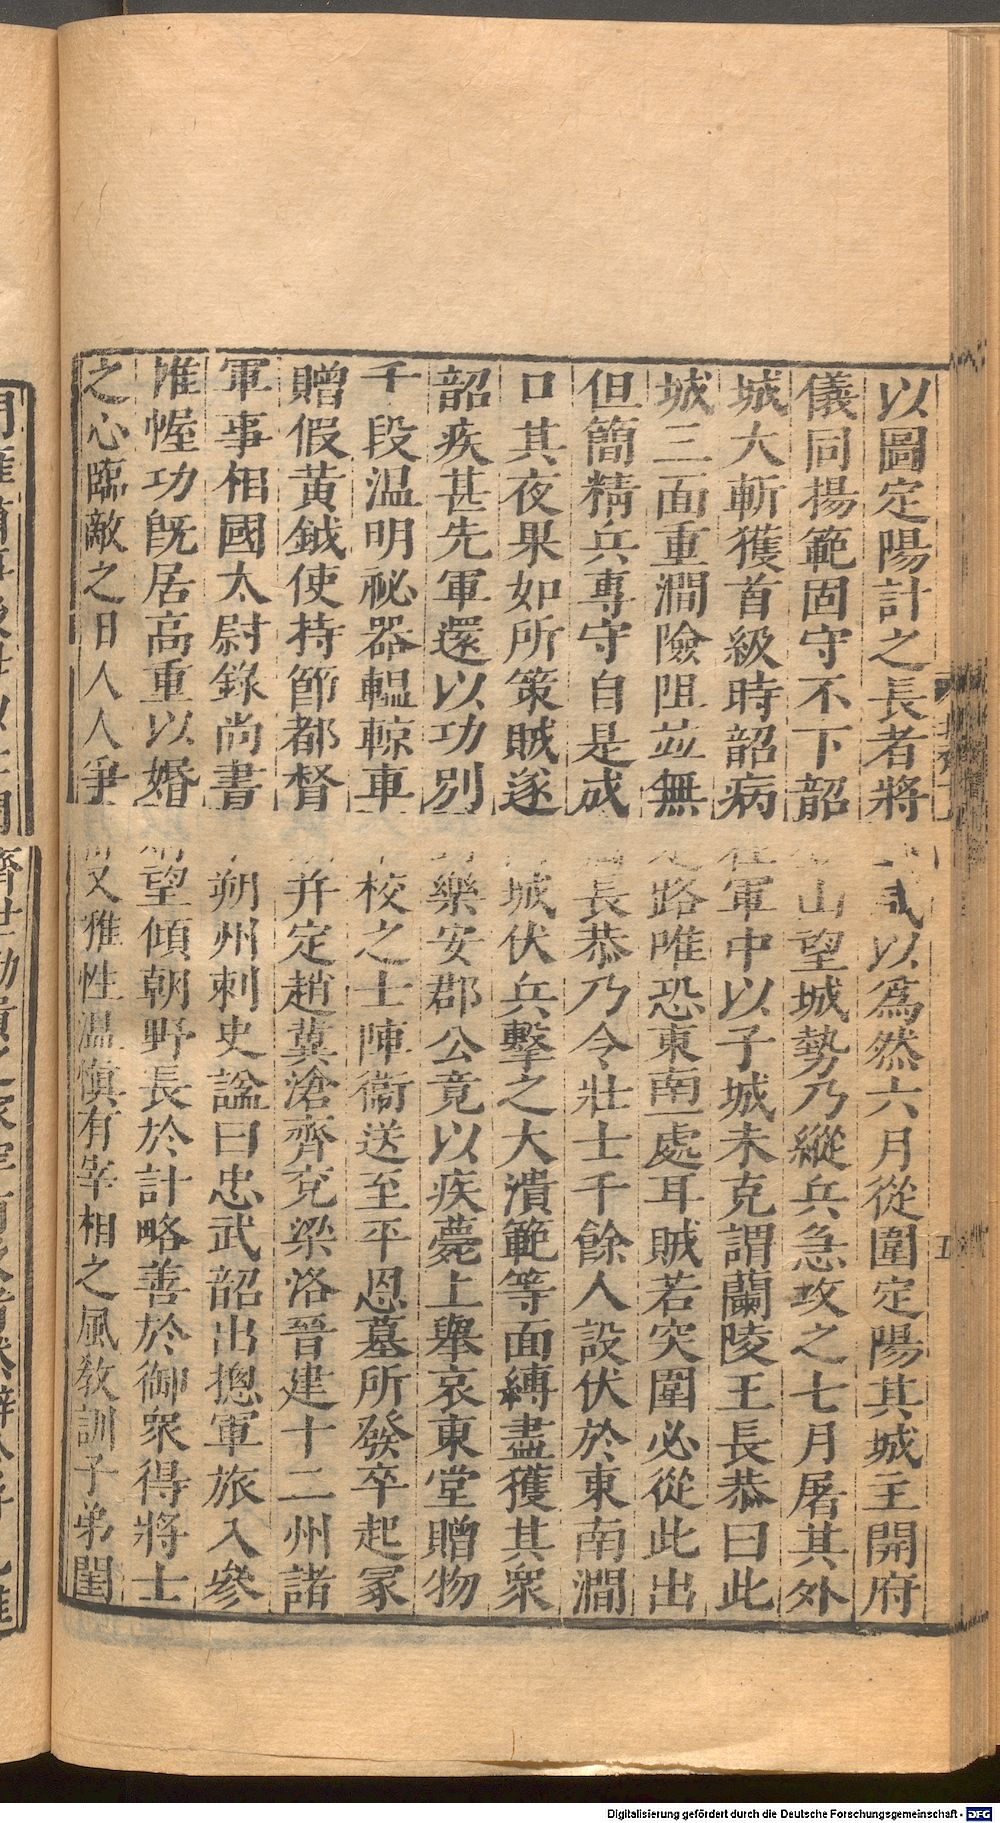 以圖定陽計之長者將武以為然六月從圍定陽其城主開府
儀同揚範固守不下韶山望城勢乃縱兵急攻之七月屠其外
城大斬獲首級時韶病軍中以子城未克謂蘭陵王長恭曰此
城三面重澗險阻並無路唯恐東南一處耳賊若突圍必從此出
但簡精兵專守自是成長恭乃令壯士千餘人設伏於東南澗
口其夜果如所策賊遂城伏兵擊之大潰範等面縛盡獲其衆
韶疾甚先軍還以功別樂安郡公竟以疾薨上舉哀東堂贈物
千段温明祕器轀輬車校之士陣衞送至平恩墓所發卒起冢
贈假黃鉞使持節都督并定趙冀滄齊兗梁洛晉建十二州諸
軍事相國太尉錄尚書朔州刺史諡曰忠武韶出揔軍旅入參
帷幄功既居高重以婚望傾朝野長於計略善於御衆得將士
之心臨敵之日人人爭又雅性温慎有宰相之風教訓子弟閨
五
Digitalisierung gefördert durch die Deutsche Forschungsgemeinschaft - DFG